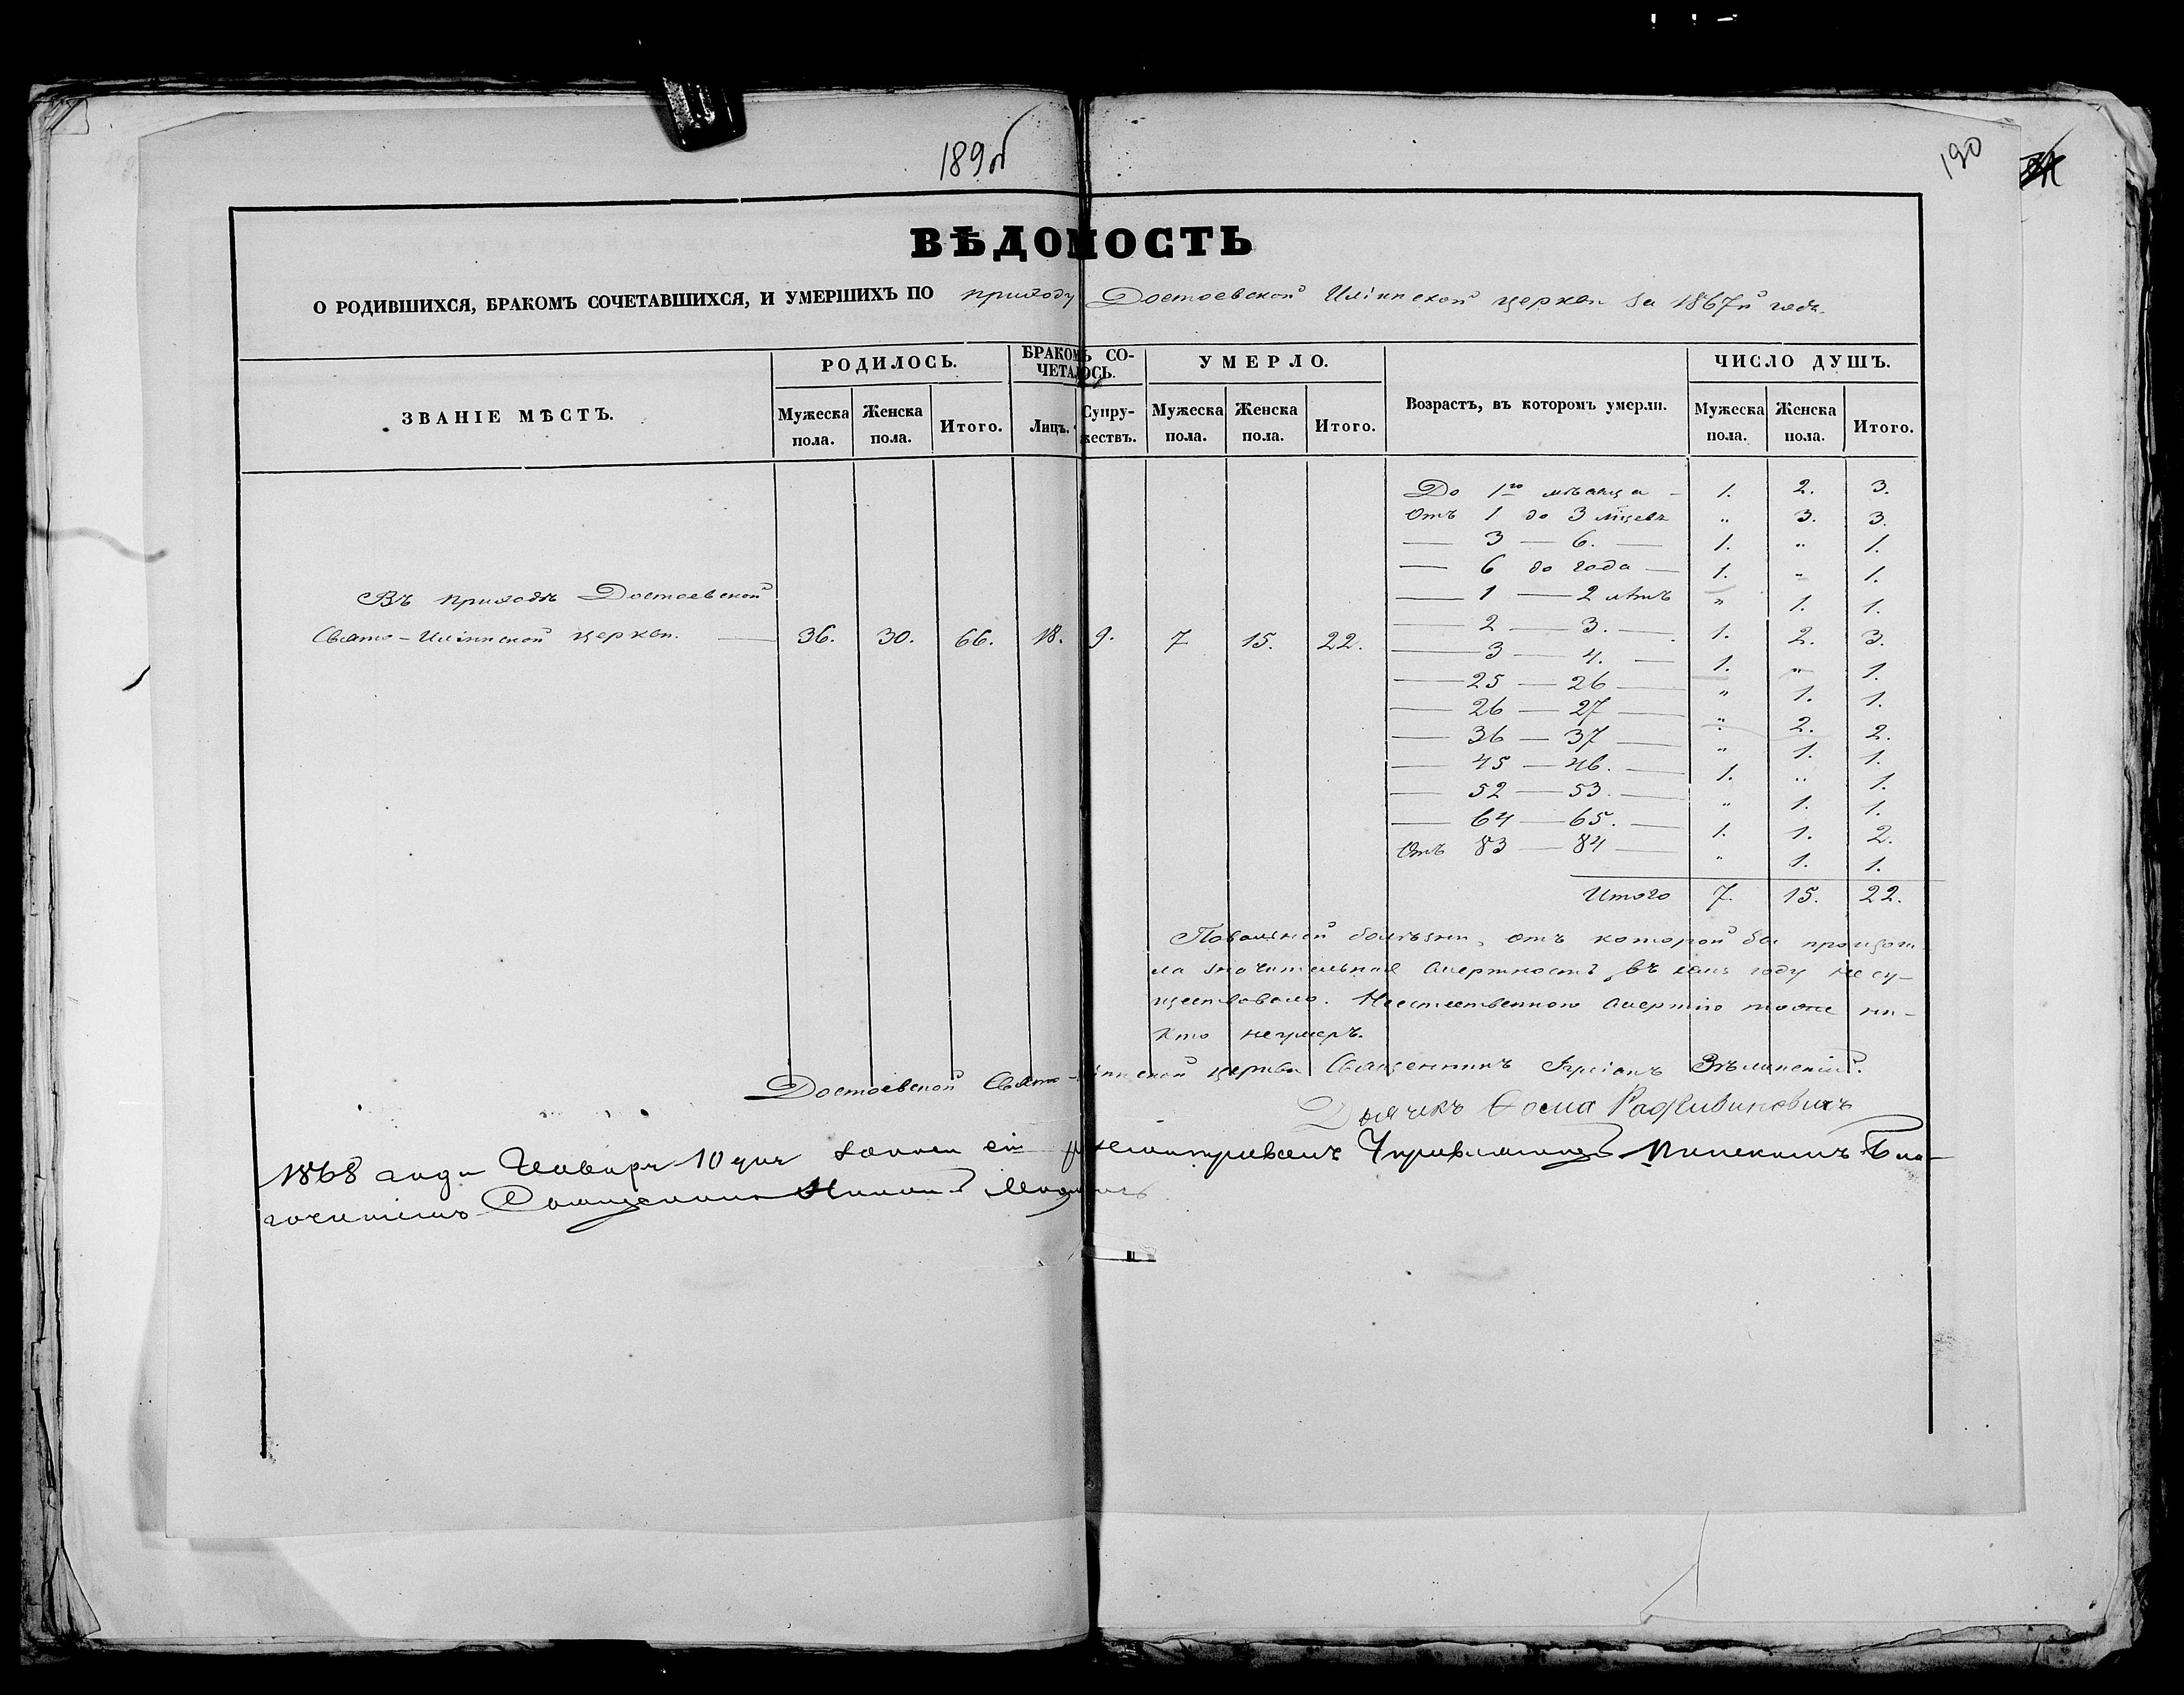 189об
190
ВѢДОМОСТЬ
О РОДИВШИХСЯ, БРАКОМЪ СОЧЕТАВШИХСЯ, И УМЕРШИХЪ ПО приходу Достоевской Иліинской церкви за 1867й годъ.
ЗВАНІЕ МѢСТЪ.
РОДИЛОСЬ.
Мужеска пола.
Женска пола.
Итого.
БРАКОМЪ СОЧЕТАЛОСЬ.
Лицъ.
Супружествъ.
УМЕРЛО.
Мужеска пола.
Женска пола.
Итого.
Возрастъ, въ которомъ умерли.
ЧИСЛО ДУШЪ.
Мужеска пола.
Женска пола.
Итого.
Въ приходѣ Достоевской
Свято-Иліинской церкви. — 36. 30. 66. 18. 9. 7 15. 22.
До 1го мѣсяца - 1. 2. 3.
Отъ 1 до 3 мцевъ " 3. 3.
— 3 — 6. — 1. " 1.
— 6 до года — 1. " 1.
— 1 — 2 лѣтъ " 1. 1.
— 2 — 3. — 1. 2. 3.
— 3 — 4. — 1. " 1.
— 25 — 26 — " 1. 1.
— 26 — 27 — " 2. 2.
— 36 — 37 — " 1. 1.
— 45 — 46. — 1. " 1.
— 52 — 53. — " 1. 1.
— 64 — 65. — 1. 1. 2.
Отъ 83 — 84 — " 1. 1.
Итого 7. 15. 22.
Повальной болѣзни, отъ которой бы произош
ла значительная смертность, въ семъ году не су-
ществовало. Неестественною смертію тоже ни-
кто неумеръ.
Достоевской Свято-Иліинской церкви Священникъ Бѣлинскій.
Дьячекъ Ѳома Радзивиновичъ
1868 года Января 10 дня
Управляющій Пинскимъ Бла-
гочиніемъ Священникъ